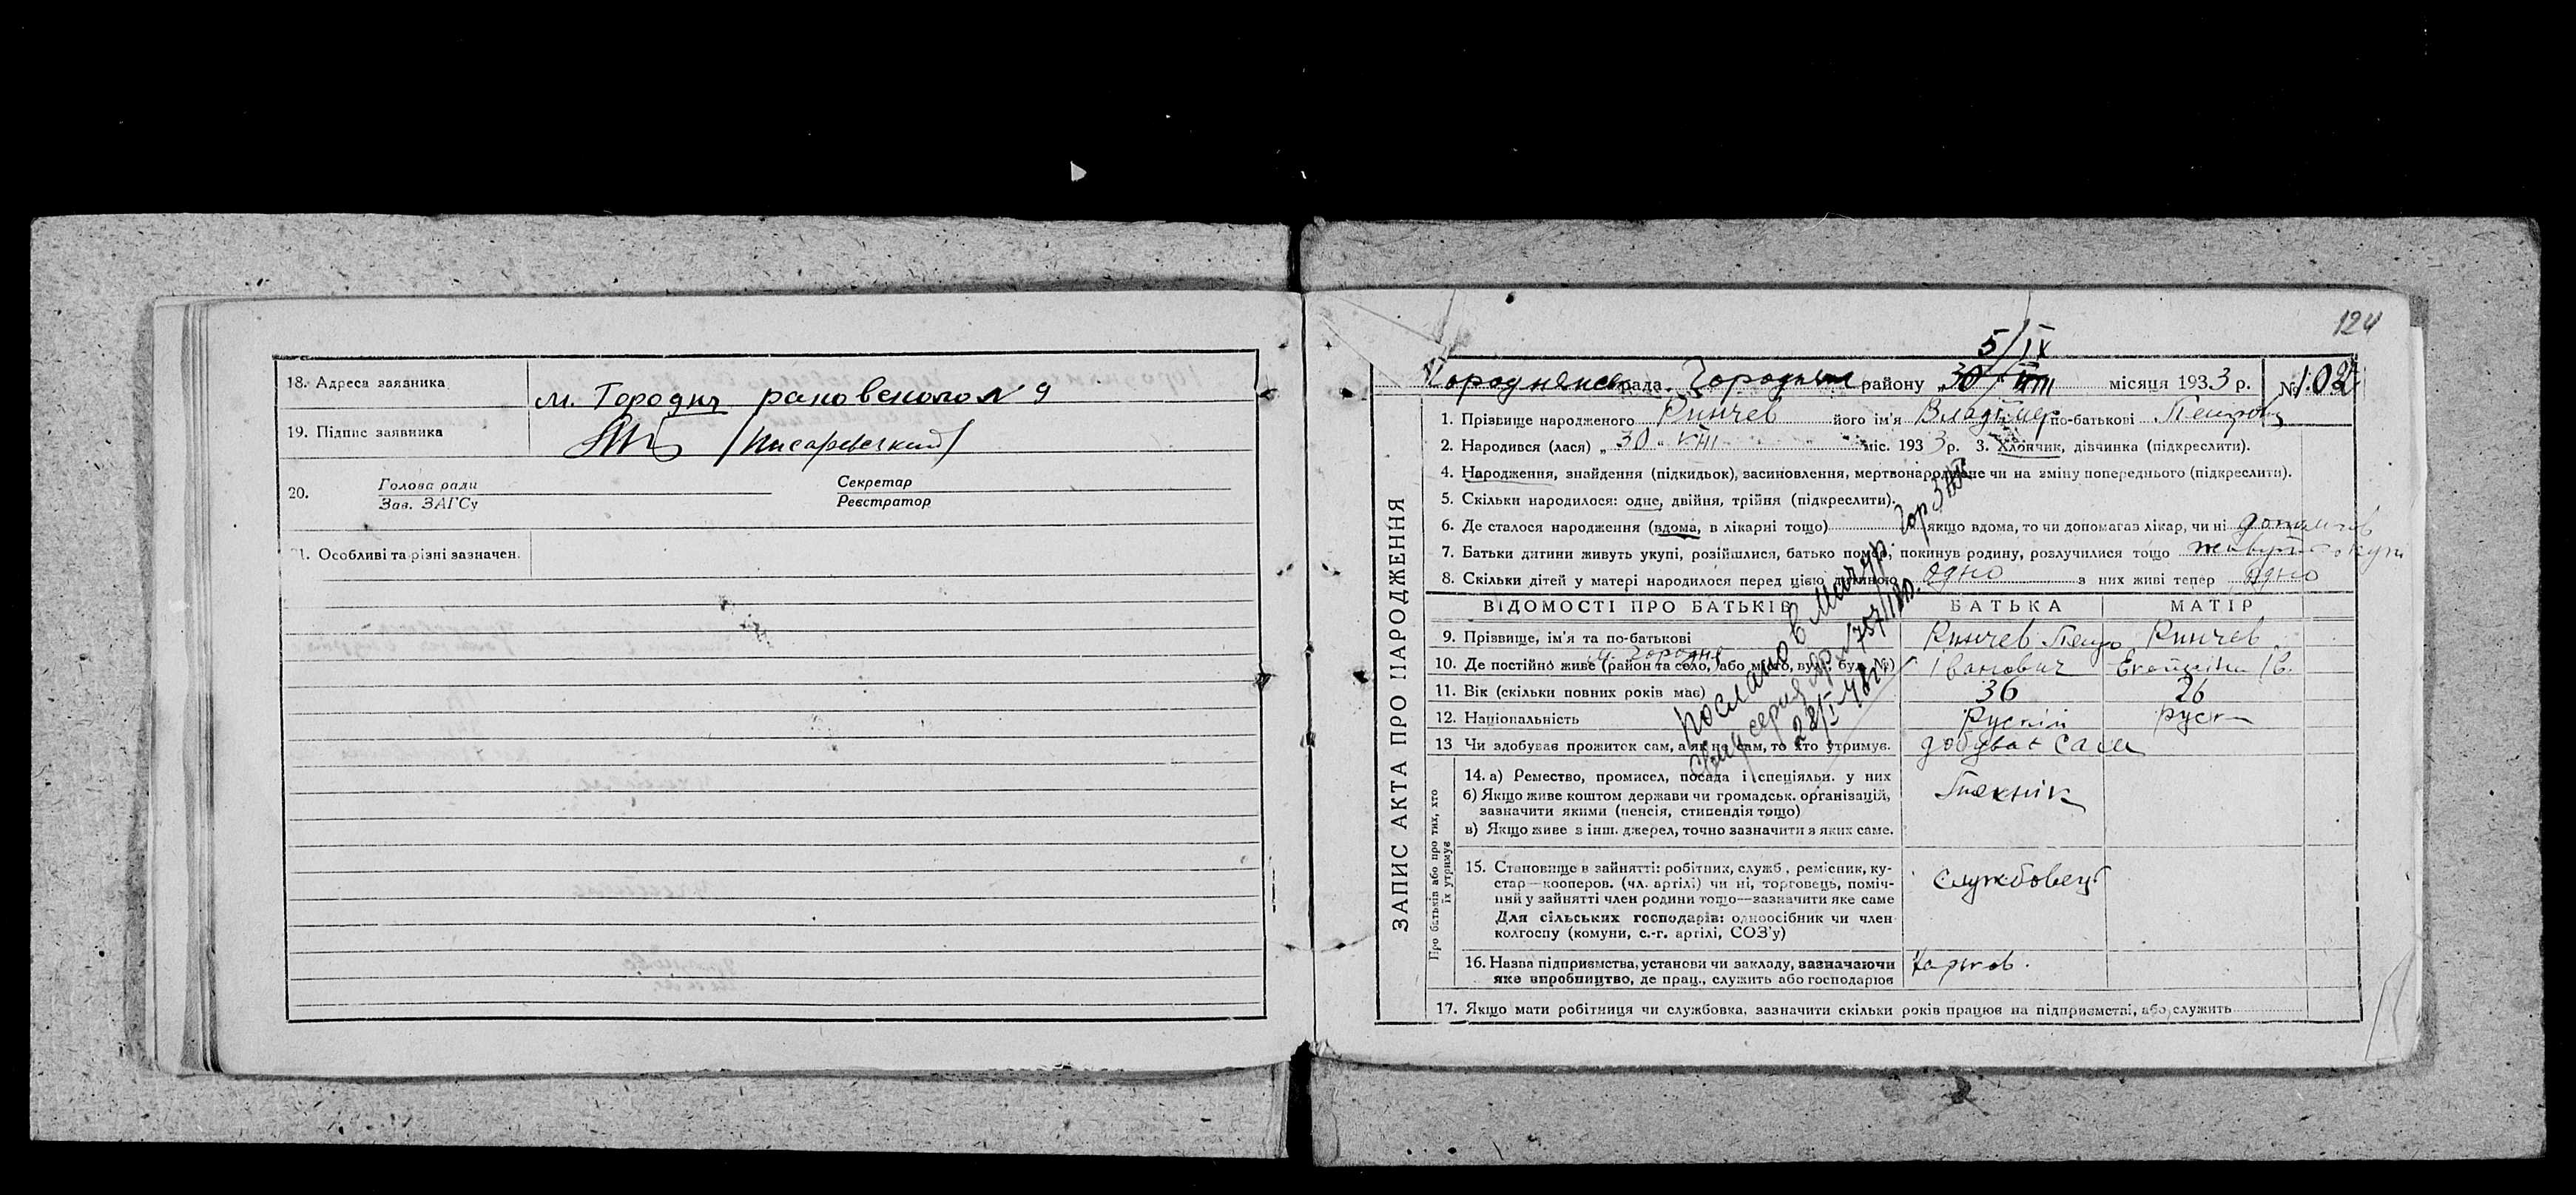 18. Адреса заявника м. Городня раковського № 9
19. Підпис заявника /Писаревський/
20. Голова ради Секретар
Зав. ЗАГСу Реєстратор
21. Особливі та різні зазначен.
124
5/IX
Городнянська рада Городнян району „30“ VIII місяця 1933 р. № 102
ЗАПИС АКТА ПРО НАРОДЖЕННЯ
1. Прізвище народженого Ринчев його ім'я Владімер по-батькові Петрович
2. Народився (лася) „30“ VIII міс. 1933 р. 3. Хлопчик, дівчинка (підкреслити).
4. Народження, знайдення (підкидьок), засиновлення, мертвонароджене чи на зміну попереднього (підкреслити).
5. Скільки народилося: одне, двійня, трійня (підкреслити).
6. Де сталося народження (вдома, в лікарні тощо) якщо вдома, то чи допомагав лікар, чи ні
7. Батьки дитини живуть укупі, розійшлися, батько помер, покинув родину, розлучилися тощо живуть вкупі
8. Скільки дітей у матері народилося перед цією дитиною одно з них живі тепер одно
ВІДОМОСТІ ПРО БАТЬКІВ БАТЬКА МАТІР
9. Прізвище, ім'я та по-батькові Ринчев Петро Ринчев
м. Городня
10. Де постійно живе (район та село, або місто, вул., буд. №) Іванович Ів.
11. Вік (скільки повних років має) 36 26
12. Національність Руский руск
13. Чи здобуває прожиток сам, а як не сам, то хто утримує. добуває сам
Про батьків або про тих, хто їх утримує
14. а) Ремество, промисел, посада і спеціяльн. у них Технік
б) Якщо живе коштом держави чи громадськ. організацій,
зазначити якими (пенсія, стипендія тощо)
в) Якщо живе з інш. джерел, точно зазначити з яких саме.
15. Становище в зайнятті: робітник, служб., ремісник, ку- службовець
стар—кооперов. (чл. артілі) чи ні, торговець, поміч-
ний у зайнятті член родини тощо—зазначити яке саме
Для сільських господарів: одноосібник чи член
колгоспу (комуни, с.-г. артілі, СОЗ'у)
16. Назва підприємства, установи чи закладу, зазначаючи Харков.
яке виробництво, де прац., служить або господарює
17. Якщо мати робітниця чи службовка, зазначити скільки років працює на підприємстві, або служить
послано в